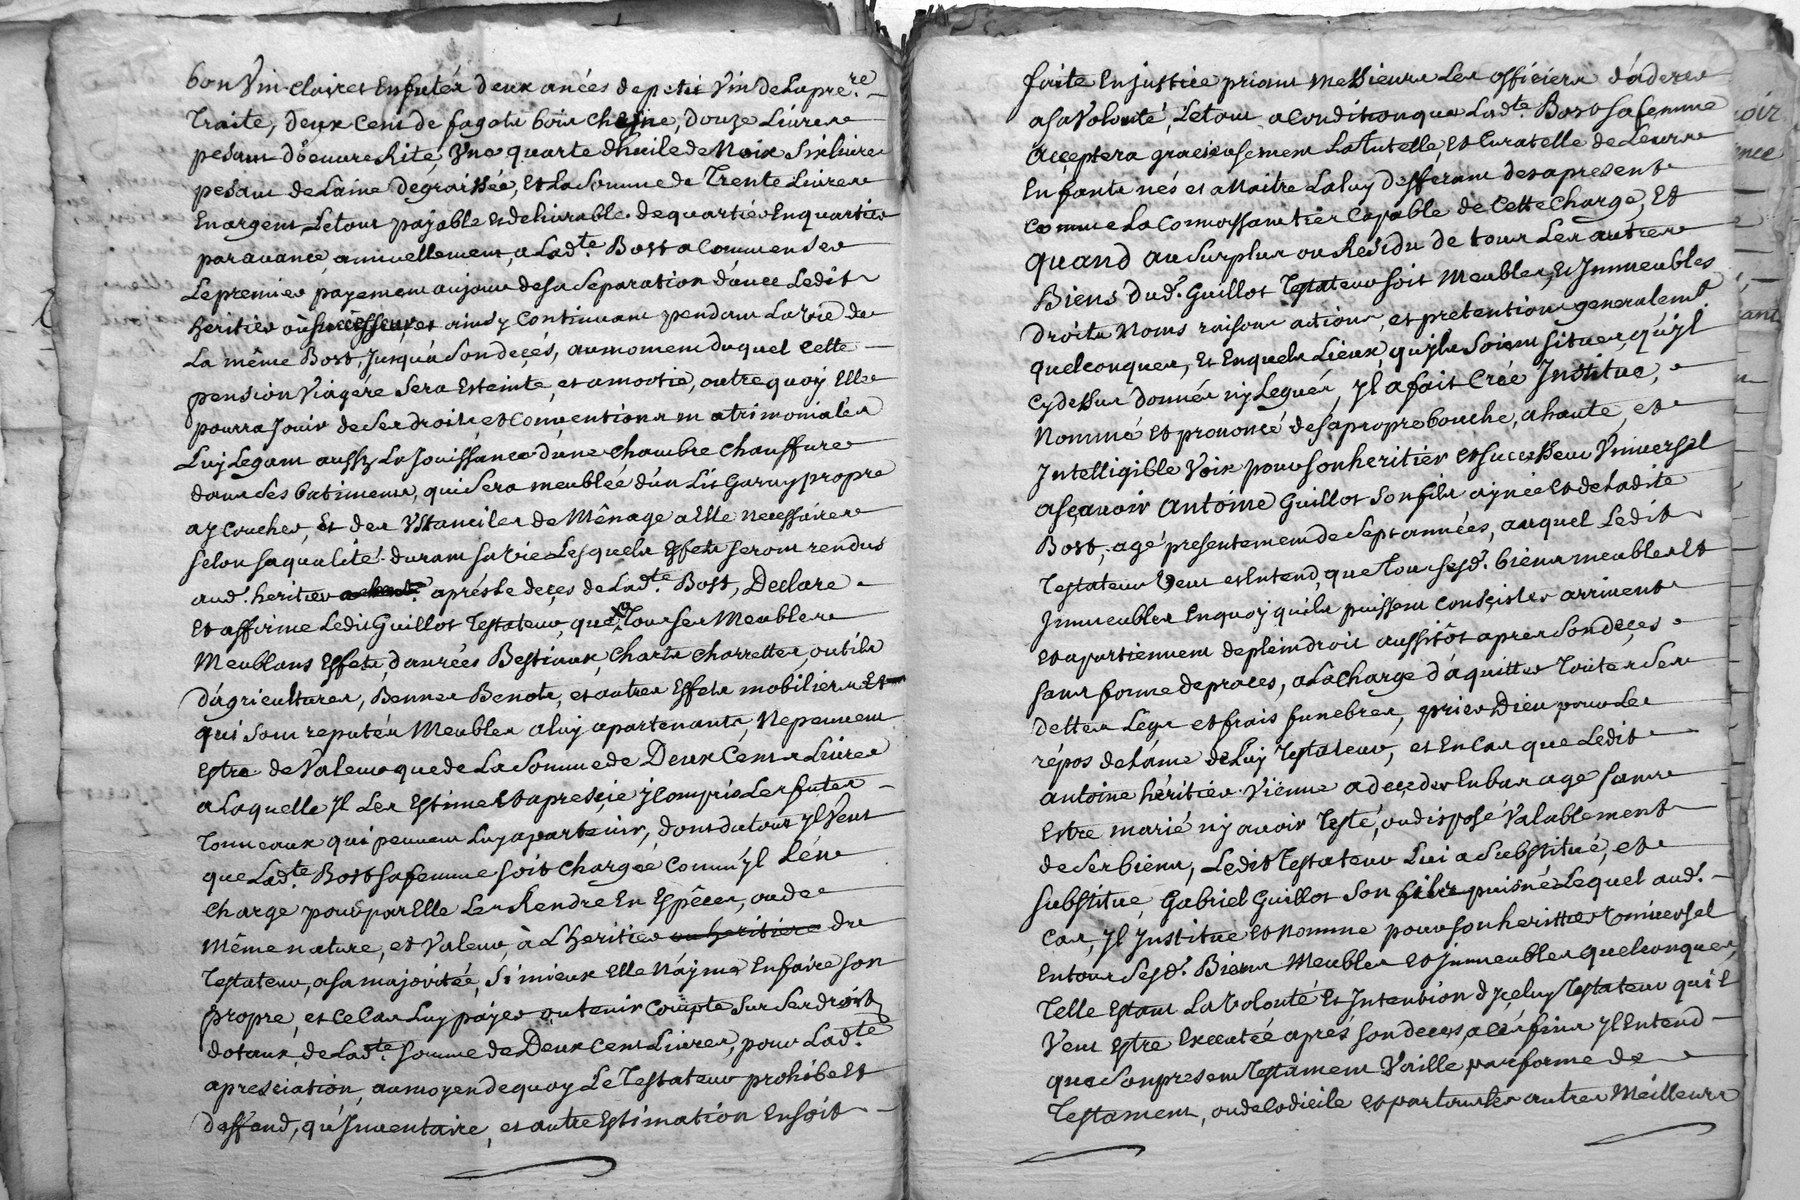 bon Vin clairet Enfutér deux anées de petit Vin de Lapre.re
Traite, deux Cent de fagots bois chesne, douze Livres
pesant d'oeuvre Rité, Une quarte dhuile de Noix Six livres
pesant de Laine dégraissée, Et La Somme de Trente Livres
En argent, Le tout payable et delivrable de quartier En quartier
par avance, annuellement, a Lad.te Bost a Commenser
Le premier payement au jour de sa Separation d'avec Ledit
heritier ou Successeur, et ainsy Continuant pendant La vie de
La même Bost, Jusqu'a Son decés, au moment duquel cette
pension Viagére Sera Esteinte, et amortie, outre quoy Elle
pourra Jouir de Ses droits et Conventions matrimoniales
Luy Legant aussy La Jouissance d'une Chambre Chauffure
dans Ses batiments, qui Sera meublée d'un Lit Garny propre
a y Coucher, Et des Ustanciles de Mênage a Elle necessaires
selon sa qualité durant sa vie Lesquels Effets seront rendus
aud. heritier aprés Le decés de Lad.te Bost, Declare
Et affirme Ledit Guillot Testateur, que Tous ses Meubles
Meublans Effets, danrées Bestiaux, Chars Charrettes, outils
d'agricultures, Bennes Benots, et autres Effets mobiliers Et
qui Sont reputés Meubles a luy apartenants, Ne peuvent
Estre de Valeur que de La Somme de Deux Cents Livres
a Laquelle Jl Les Estime Et apresie y Compris Les futes
Tonneaux qui peuvent Luy apartenir, dont du tout Jl Veut
que Lad.te Bost sa femme soit Chargée Comm'Jl L'en
Charge pour par Elle Les Rendre En Espêces, ou de
Même nature, et Valeur, à L'heritier ou heritiere du
Testateur, a sa majoritée, Si mieux Elle N'ayme En faire son
propre, et Ce Cas Luy payer ou tenir Compte Sur Ses droits
dotaux de Lad.te Somme de Deux Cent Livres, pour Lad.te
apresciation, au moyen de quoy Le Testateur prohibe Et
deffend, qu'Jnventaire, et autre Estimation En Soit
faite En justice priant Messieurs Les officiers d'aderer
a sa Volonté, Le tout a Condition que Lad.te Bost sa femme
acceptera gracieusement La Tutelle, Et Curatelle de Leurs
Enfants nés et a Naitre La luy defferant des a present
comme La Connoissant tres Capable de Cette Charge, Et
quand au Surplus ou Residu de tous Les autres
Biens dud. Guillot Testateur soit Meubles, Et Jmmeubles
droits Noms raisons actions, et pretentions generalemt.
quelconques, Et En quels Lieux, qu'jls Soient Situes, qu'jl
Cy dessus donnés n'y Legués, Jl a fait Créé Jnstitue,
Nommé Et prononcé de sa propre bouche, a haute, et
Jntelligible Voix pour son heritier et Successeur Universel
a sçavoir Antoine Guillot Son fils ayneé Et de Ladite
Bost, agé presentement de Sept années, auquel Ledit
Testateur Veut et Entend, que Tous sesd. biens meubles Et
Jmmeubles En quoy qu'ils puissent Consister arrivent
et apartiennent de plein droit aussitôt apres Son deçes
sans forme de proces, a La Charge d'aquitter Toutes Ses
dettes Légs et frais funebres, prier Dieu pour Le
répos de L'ame de Luy Testateur, et En Cas que Ledit
antoine héritier Vienne a deceder En bas age Sans
Estre marié n'y avoir Testé, ou disposé Valablement
de Ses biens, Ledit Testateur Lui a Substitué, et
substitue Gabriel Guillot Son fils puisné Lequel aud.
Cas, Jl Jnstitue Et Nomme pour son heritier Universel
En tous Sesd. Biens Meubles Et Jmmeubles quelconques,
Telle Estant La Volonté Et Jntention d'Jceluy Testateur qu'il
Veut Estre Executée aprés Son deces, a Ces fins Jl Entend
que Son present Testament Vaille par forme de
Testament, ou de Codicile et par toutes autres Meilleurs